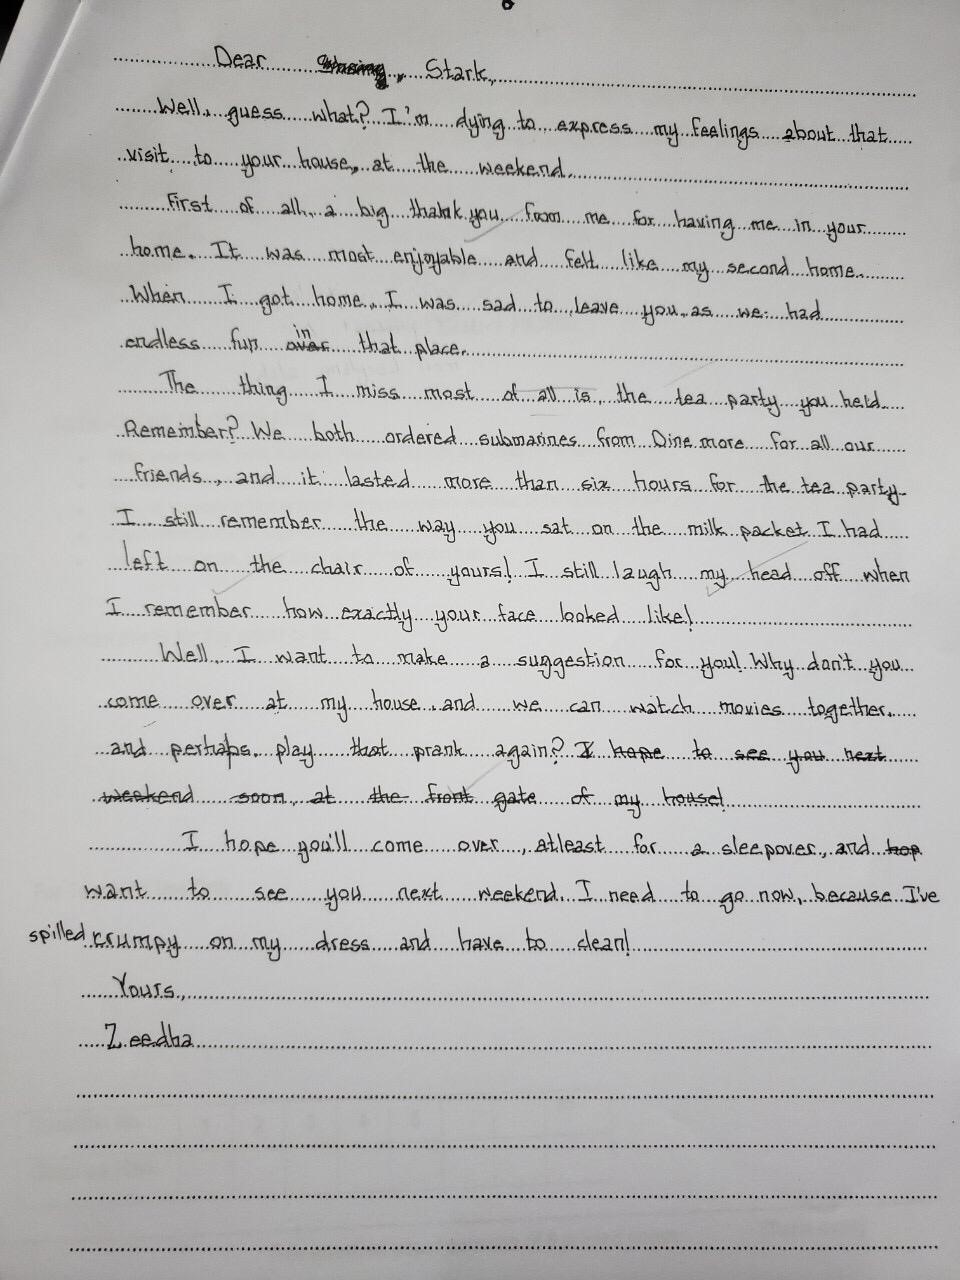 Dear , Stark,
Well, guess what? I'm dying to express my feelings about that
visit to your house, at the weekend.
First of all, a big thank you from me for having me in your
home. It was most enjoyable and felt like my second home.
When I got home, I was sad to leave you, as we had
endless fun in that place.
The thing I miss most of all is, the tea party you held.
Remember? We both ordered submarines from Dine more for all our
friends, and it lasted more than six hours for the tea party.
I still remember the way you sat on the milk packet I had
left on the chair of yours! I still laugh my head off when
I remember how exactly your face looked like!
Well, I want to make a suggestion for you! Why don't you
come over at my house, and we can watch movies together,
and perhaps, play that prank again? I hope to see you next
weekend soon, at the front gate of my house!
I hope you'll come over, atleast for a sleepover, and hop
want to see you next weekend. I need to go now, because I've
spilled crumpy on my dress and have to clean!
Yours,
Zeedha